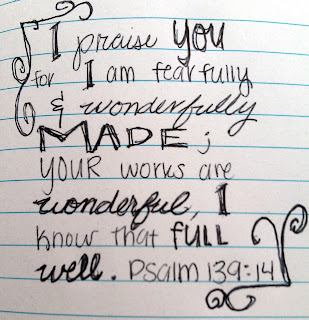 I praise YOU
for I am fearfully
& wonderfully
MADE;
YOUR works are
wonderful, I
know that FULL
well. Psalm 139:14